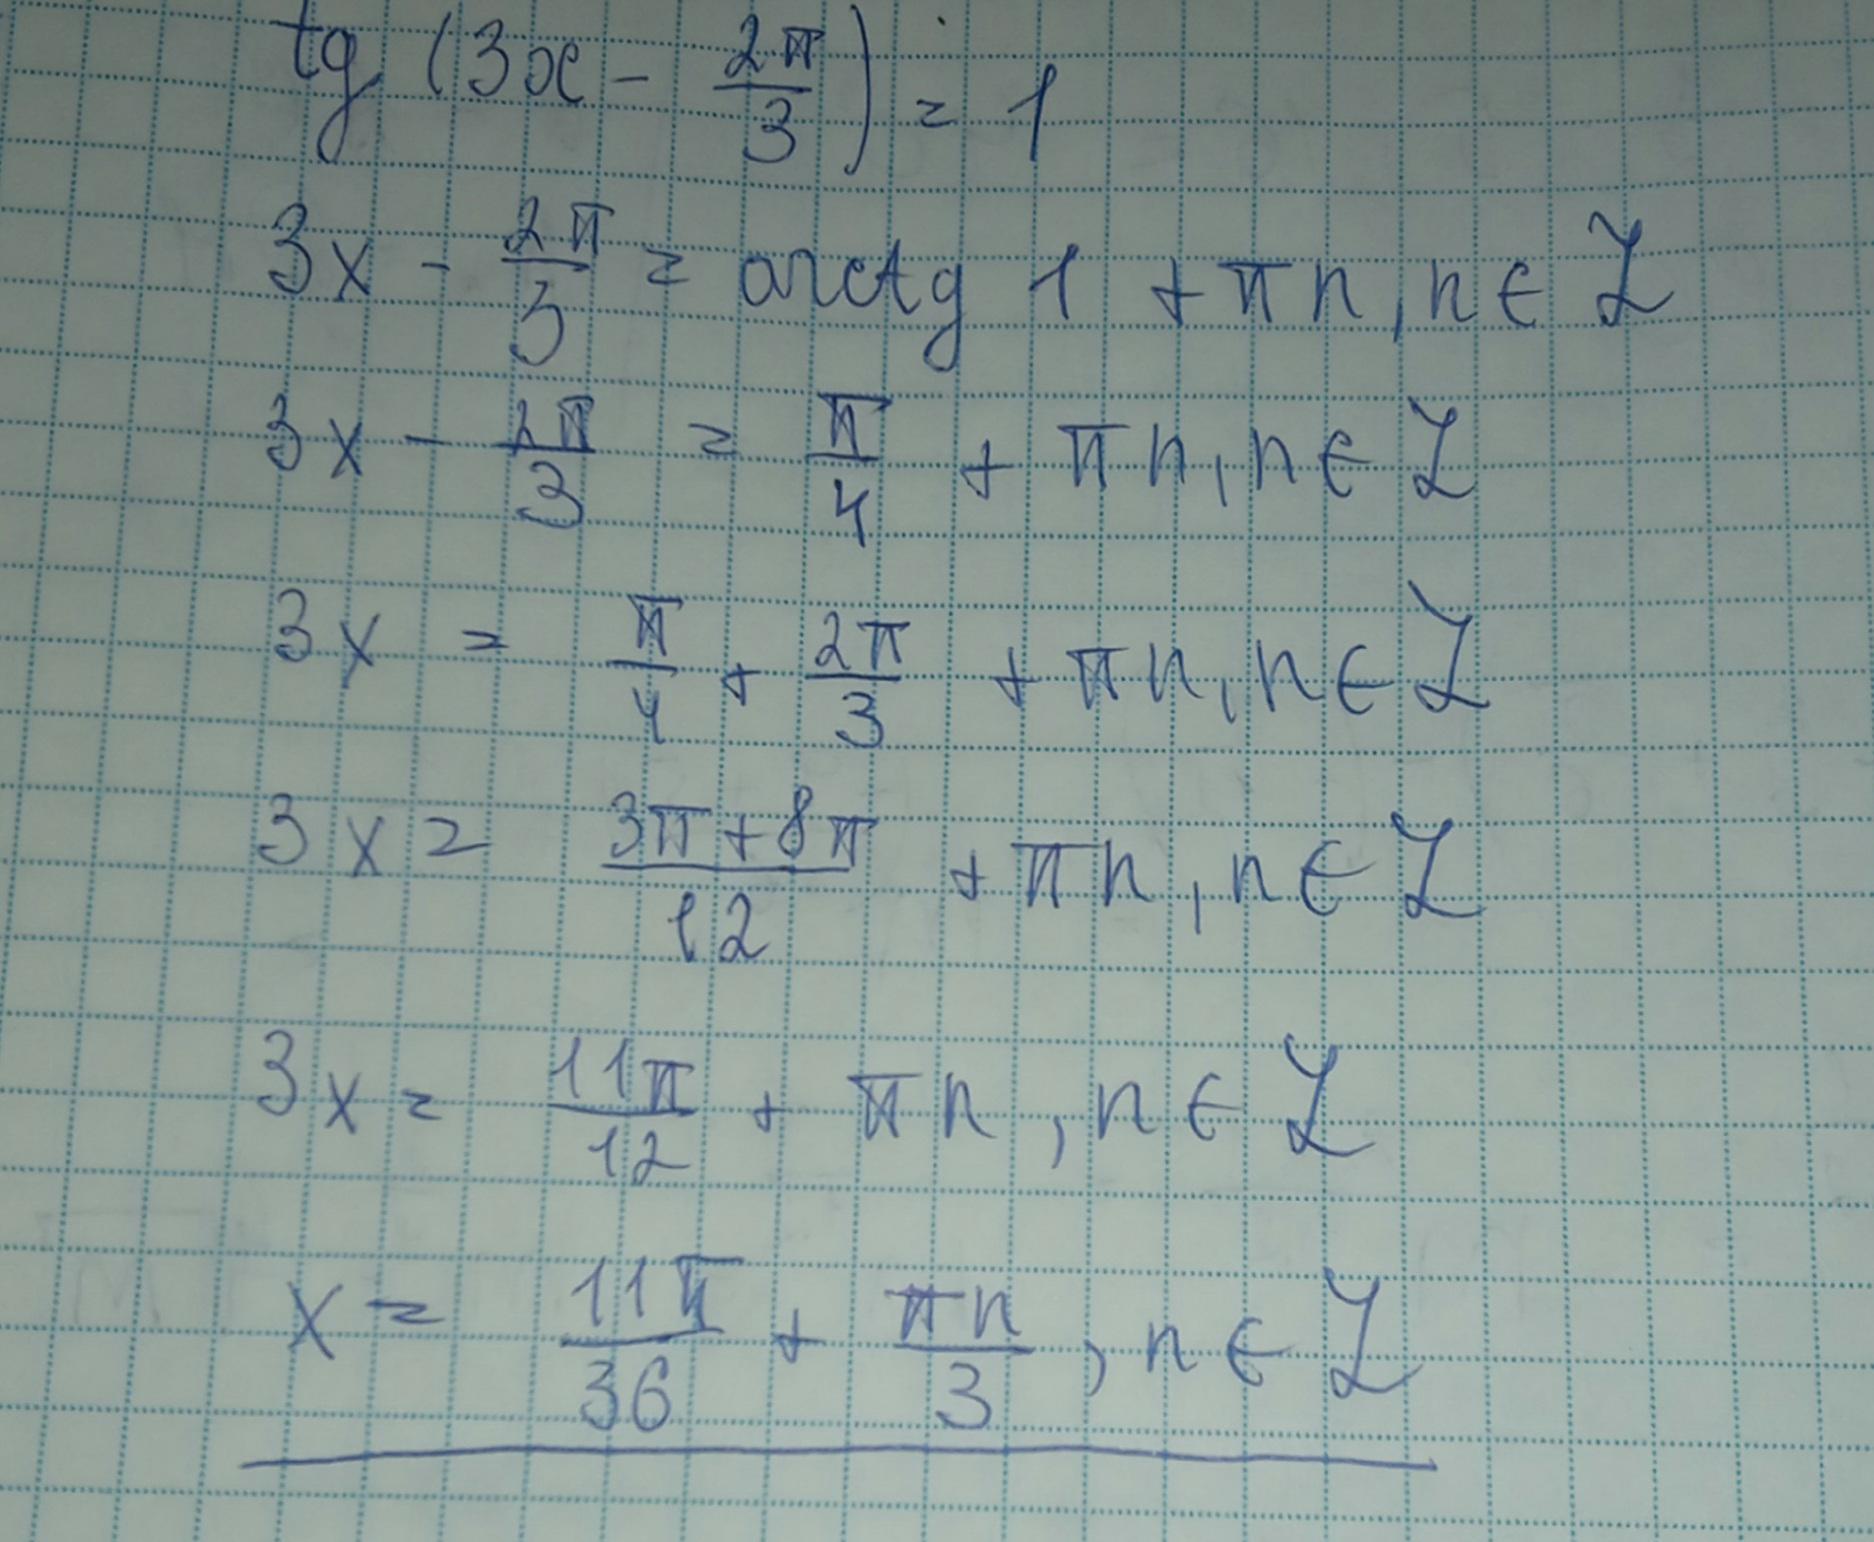 tg (3x - 2π/3) = 1
3x - 2π/3 = arctg 1 + πn, n ∈ Z
3x - 2π/3 = π/4 + πn, n ∈ Z
3x = π/4 + 2π/3 + πn, n ∈ Z
3x = (3π + 8π)/12 + πn, n ∈ Z
3x = 11π/12 + πn, n ∈ Z
x = 11π/36 + πn/3, n ∈ Z